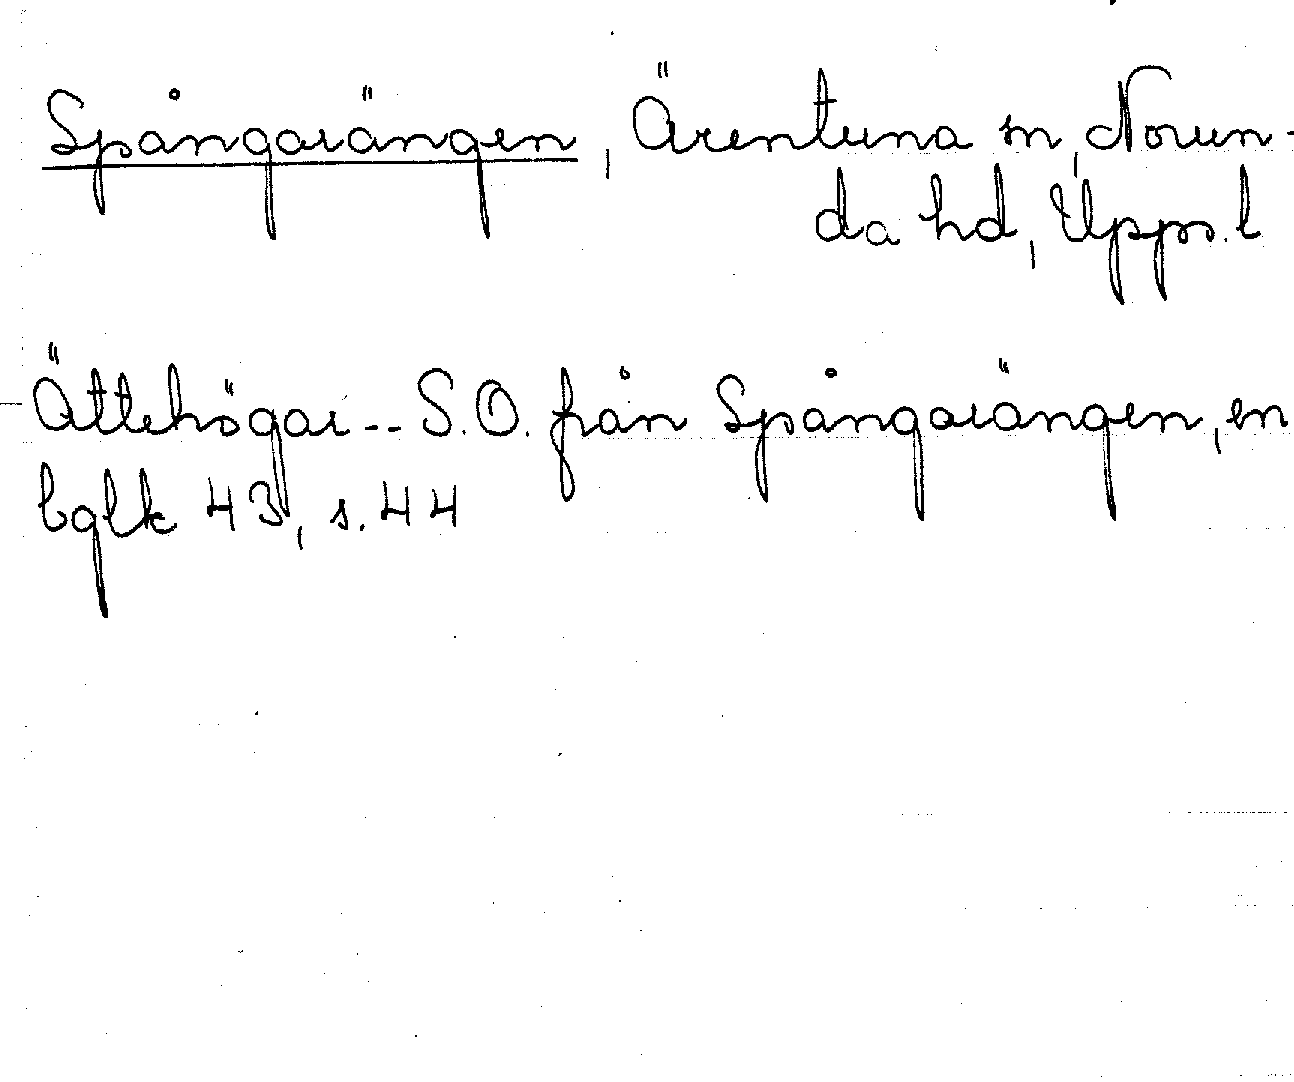 Spångarängen, Ärentuna sn, Norun-
da hd, Upps. l
Ättehögar-- S.O. från Spångarängen, en
bglk 43, s. 44